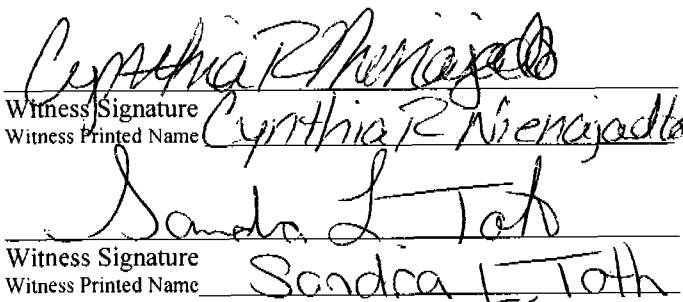 Cynthia R Nienajadlo
Witness Signature
Witness Printed Name Cynthia R Nienajadlo
Sandra L Toth
Witness Signature
Witness Printed Name Sandra L Toth